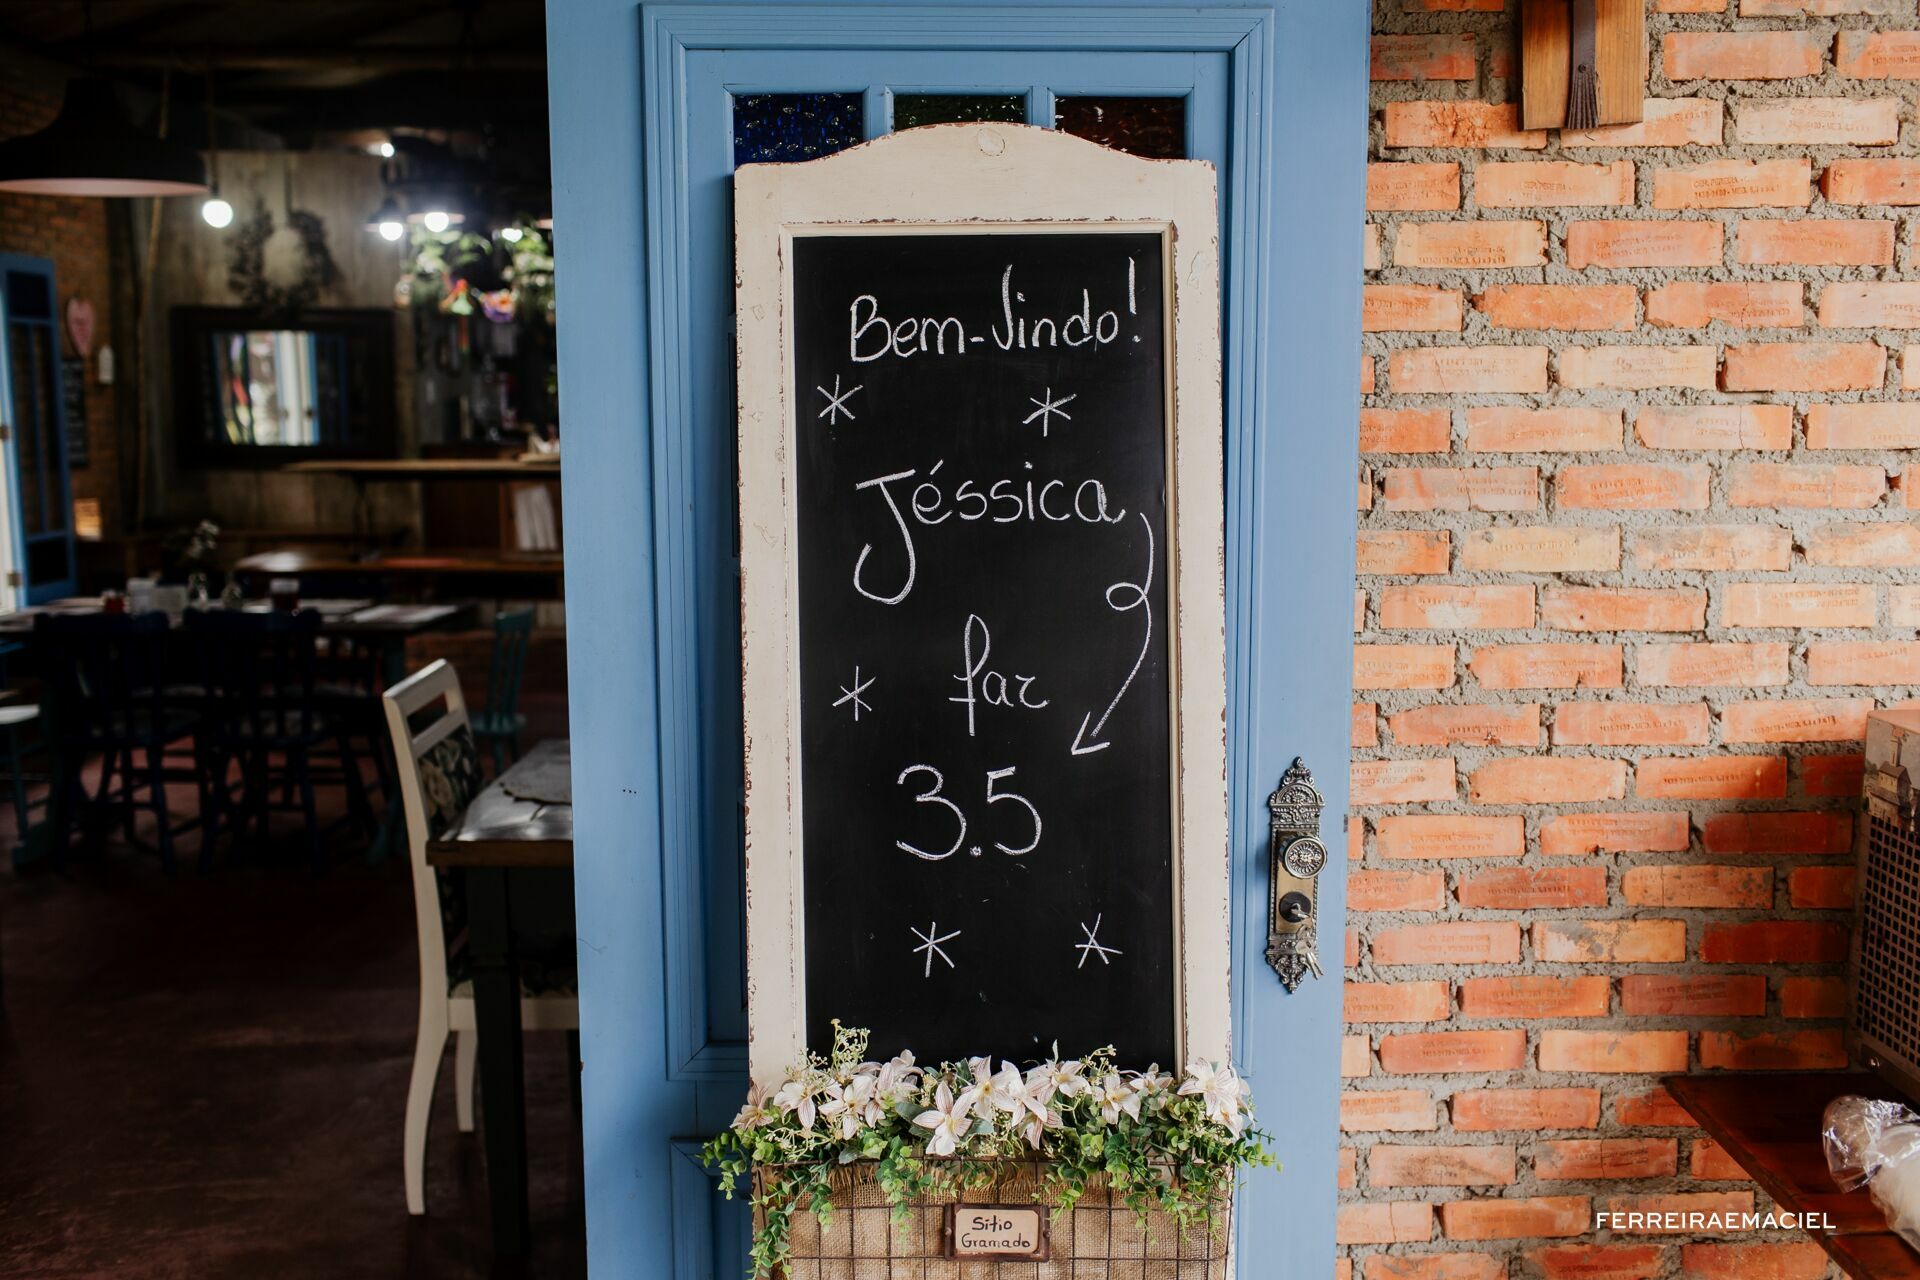 Bem-Vindo!
Jéssica
faz
3.5
Sítio
Gramado
FERREIRAEMACIEL